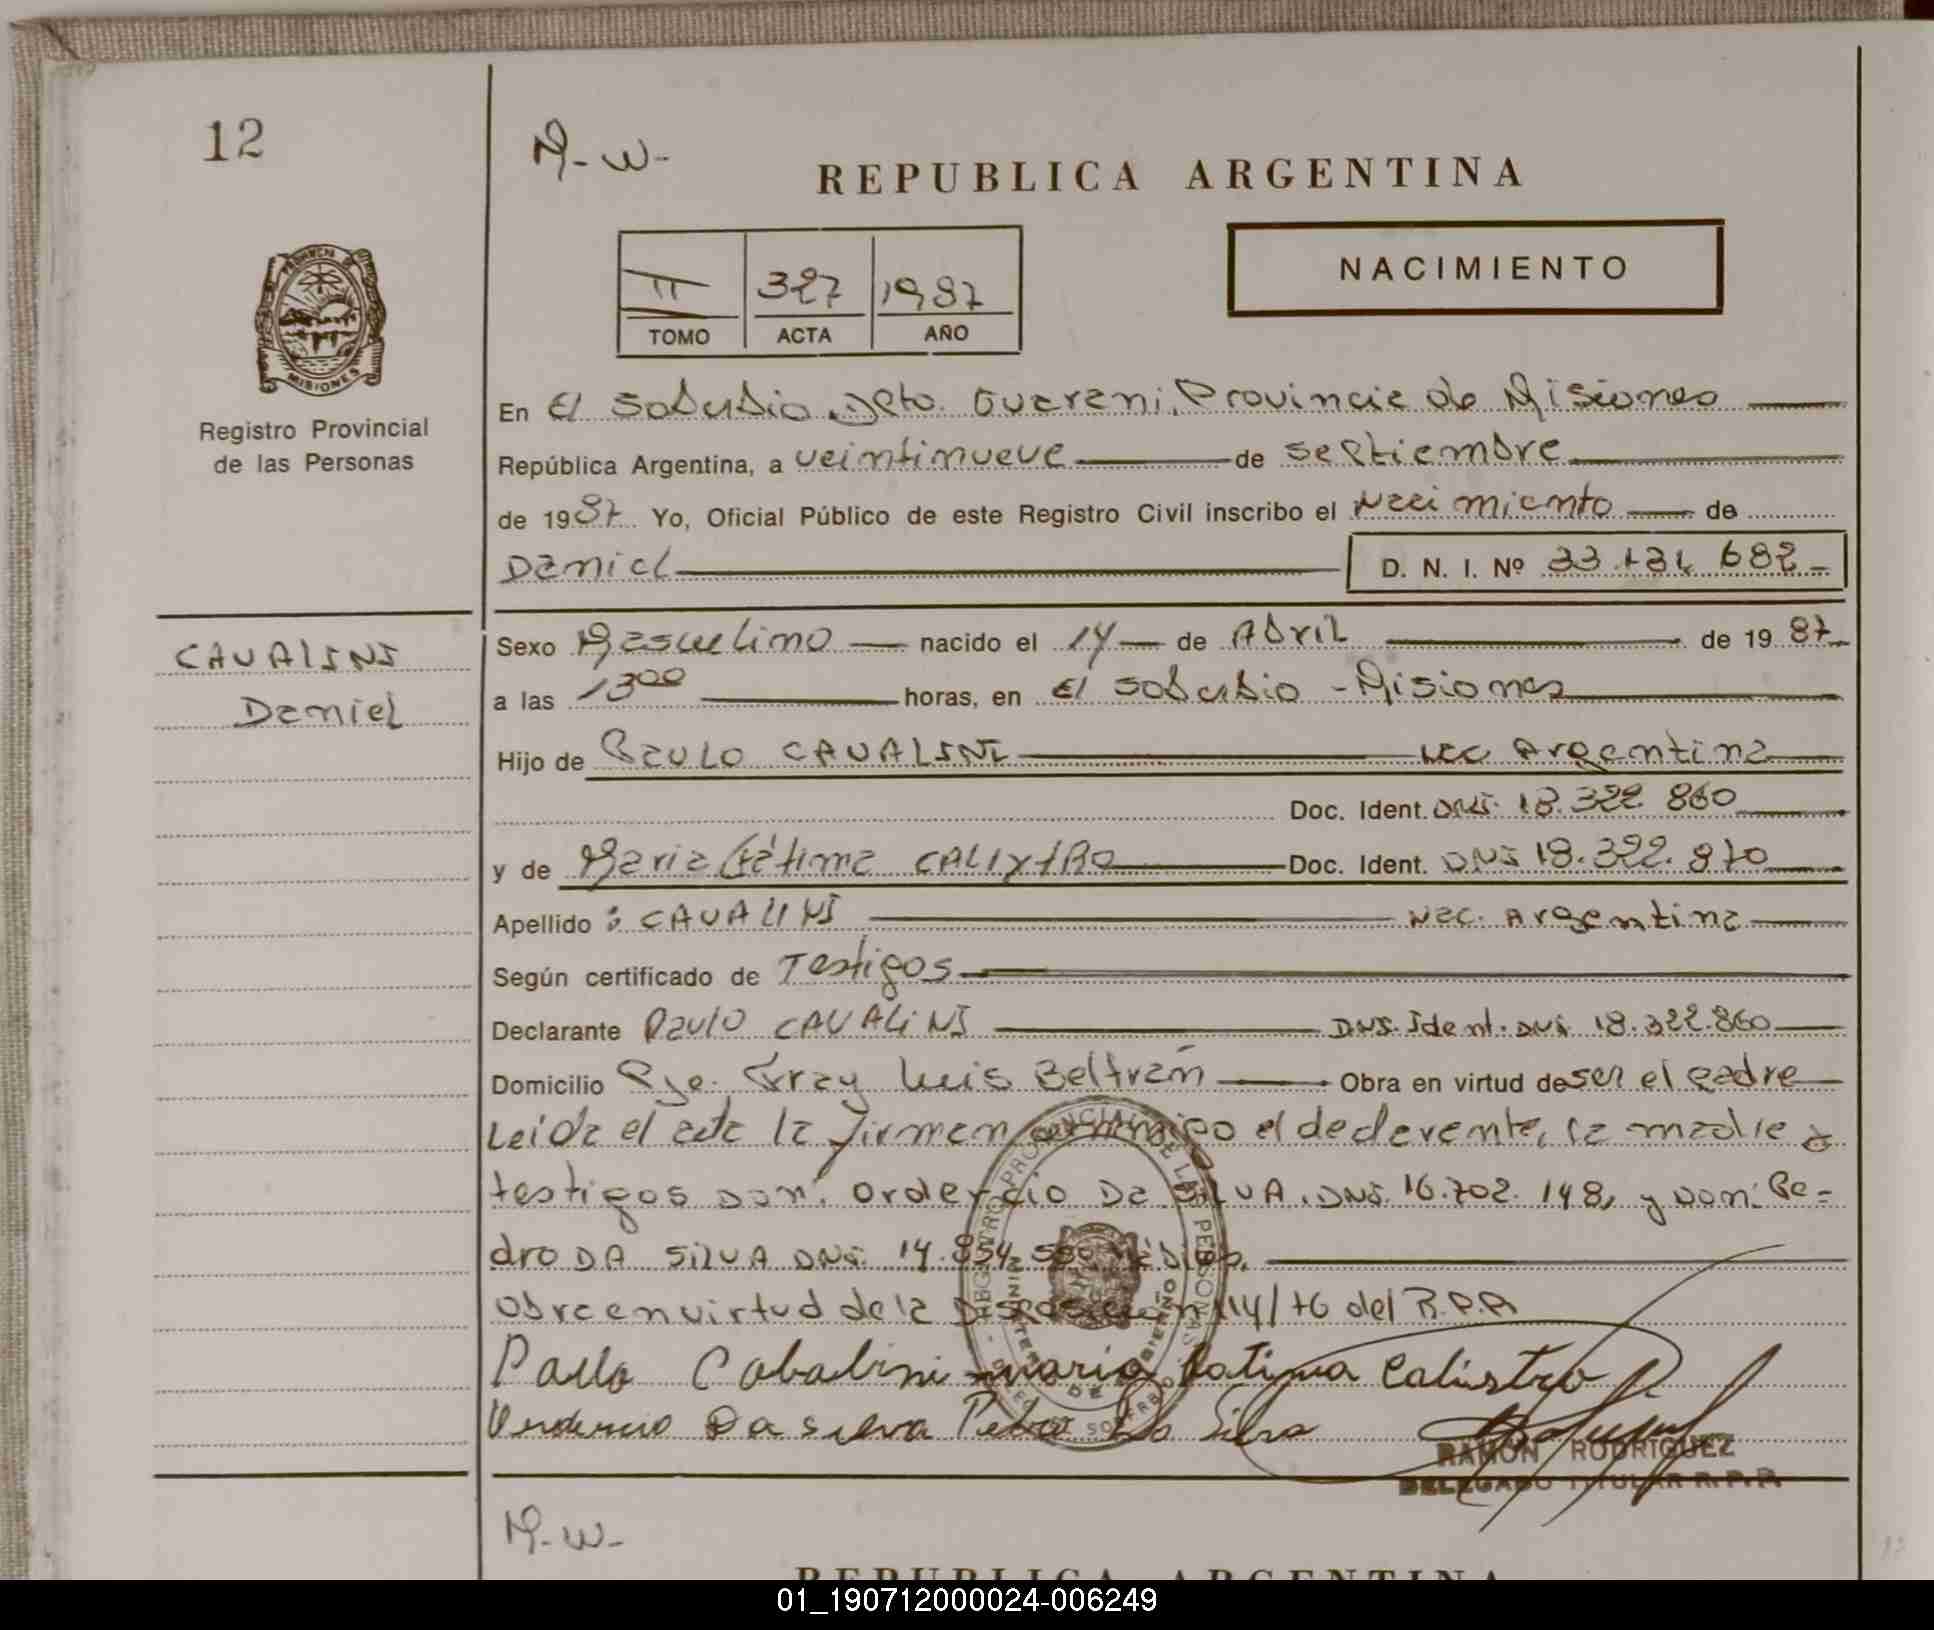 12
M-W-
REPUBLICA ARGENTINA
II 327 1987
TOMO ACTA AÑO
NACIMIENTO
PROVINCIA DE
MISIONES
Registro Provincial
de las Personas
En El Soberbio Dpto. Guarani, Provincia de Misiones
República Argentina, a veintinueve de septiembre
de 1987 Yo, Oficial Público de este Registro Civil inscribo el Nacimiento de
Daniel D. N. I. Nº 33 682-
CAVALINI
Daniel
Sexo Masculino nacido el 14 de Abril de 19 87
a las 13 00 horas, en El Soberbio - Misiones
Hijo de Paulo CAVALINI Nac Argentina
Doc. Ident. DNI. 18.322 860
y de Maria Fátima CALIXTRO Doc. Ident. DNI 18.322.870
Apellido : CAVALINI Nac. Argentina
Según certificado de Testigos
Declarante Paulo CAVALINI DNI. Ident. DNI. 18.322.860
Domicilio Pje. Fray Luis Beltrán Obra en virtud de ser el padre
Leída el acta la firman conmigo el declarante, la madre
testigos Don: Ordercio DA SILVA. DNI. 16.702.148, y Don: Pe=
dro DA SILVA DNI. 14.854.
Obra en virtud de la Disposicion 114/76 del R.P.P
Paulo Cabalini maria Fatima Calistro
Ordercio Da silva Pedro Da Silva
RAMON RODRIGUEZ
DELEGADO TITULAR R.P.P.
M-W-
REPUBLICA ARGENTINA
01_190712000024-006249